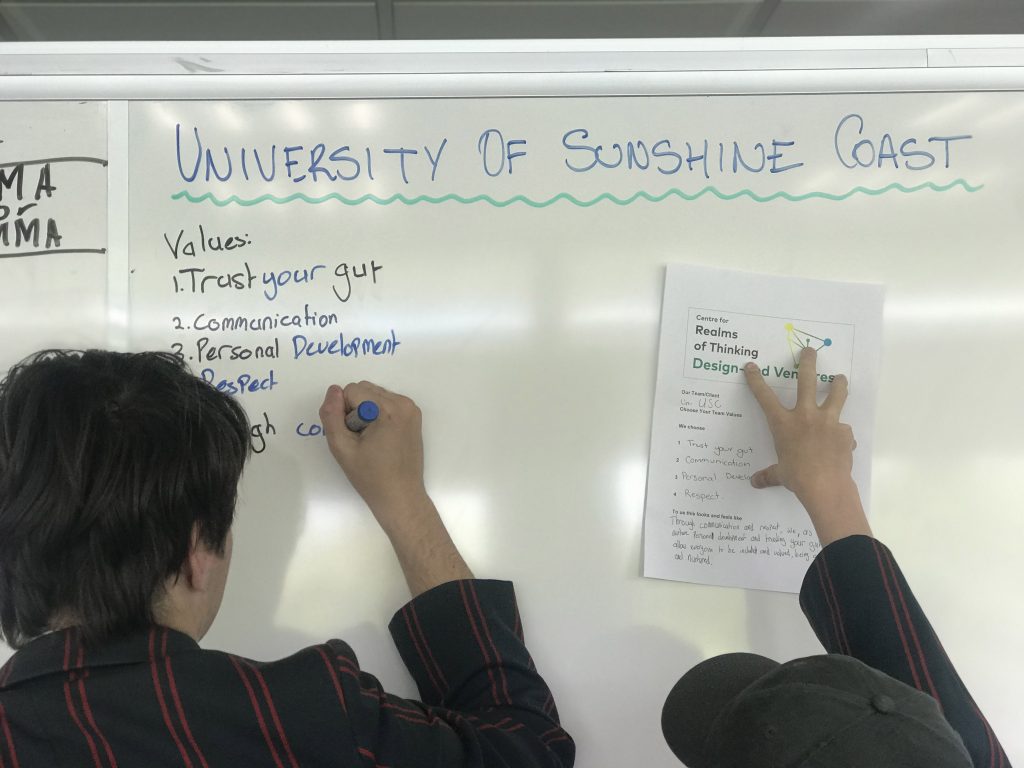 MA
or
MMA
UNIVERSITY OF SUNSHINE COAST
Values:
1. Trust your gut
2. Communication
3. Personal Development
Respect
Centre for
Realms
of Thinking
Design-led Ventures
Our Team/Client
Uni: USC
Choose Your Team Values
We choose
1 Trust your gut
2 Communication
3 Personal Develo
4 Respect.
To us this looks and feels like
Through communication and respect we, as
personal development and trusting your gut
allow everyone to be included and valued, being
and nurtured.